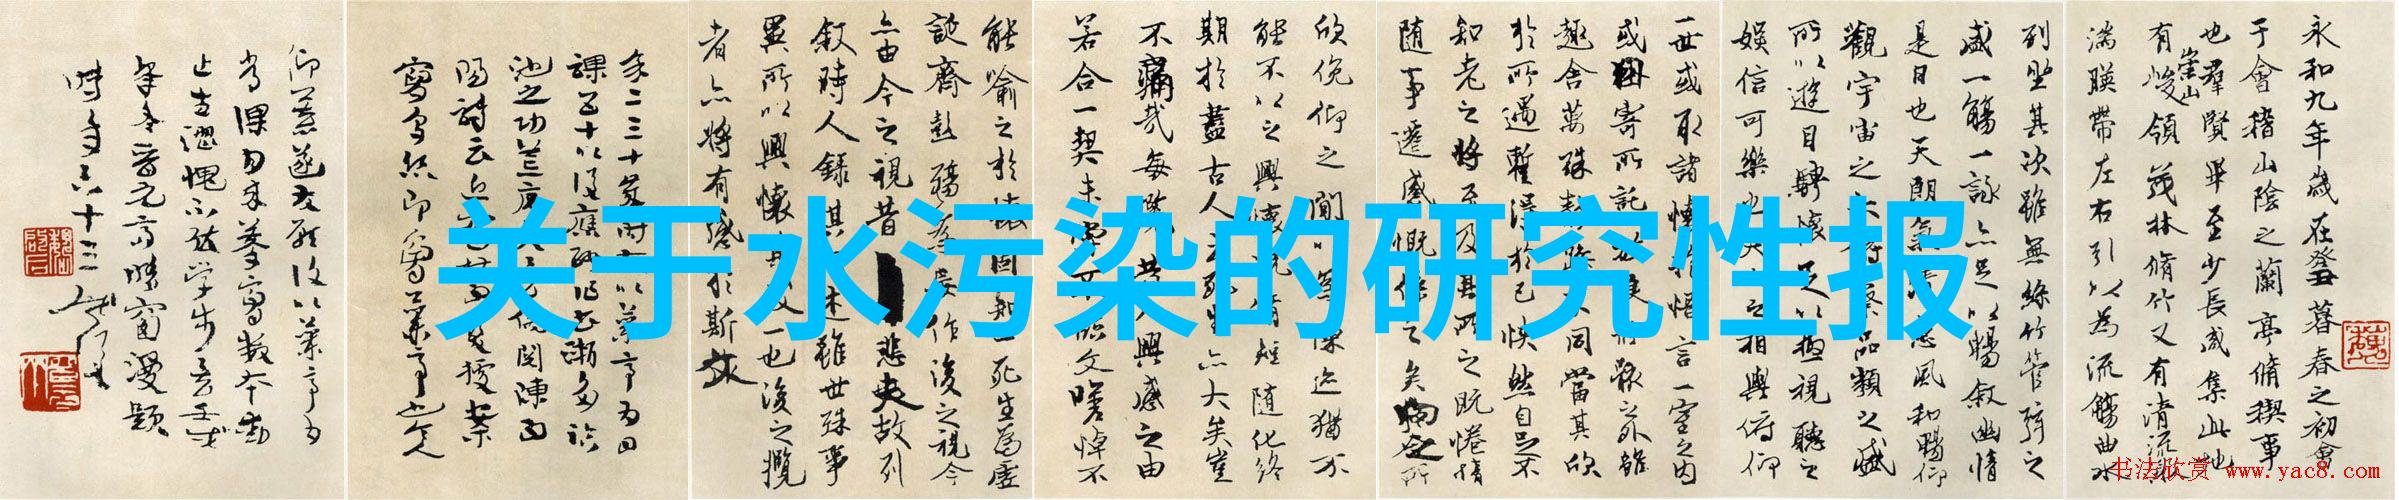 关于水污染的研究性报
永和九年歲在癸丑暮春之初會
于會稽山陰之蘭亭脩稧事
也群賢畢至少長咸集此地
有崇山峻領茂林脩竹又有清流激
湍暎帶左右引以為流觴曲水
列坐其次雖無絲竹管弦之
盛一觴一詠亦足以暢叙幽情
是日也天朗氣清惠風和暢仰
觀宇宙之大俯察品類之盛
所以遊目騁懷足以極視聽之
娛信可樂也夫人之相與俯仰
一世或取諸懷抱悟言一室之內
或因寄所託放浪形骸之外雖
趣舍萬殊靜躁不同當其欣
於所遇暫得於己快然自足不
知老之將至及其所之既惓情
隨事遷感慨係之矣向之所
欣俛仰之閒以為陳迹猶不
能不以之興懷況脩短隨化終
期於盡古人云死生亦大矣豈
不痛哉每攬昔人興感之由
若合一契未嘗不臨文嗟悼不
能喻之於懷固知一死生為虛
誕齊彭殤為妄作後之視今
亦由今之視昔悲夫故列
叙時人錄其所述雖世殊事
異所以興懷其致一也後之攬
者亦將有感於斯文
池之功
時年六十三
书法欣赏 www.yac8.com